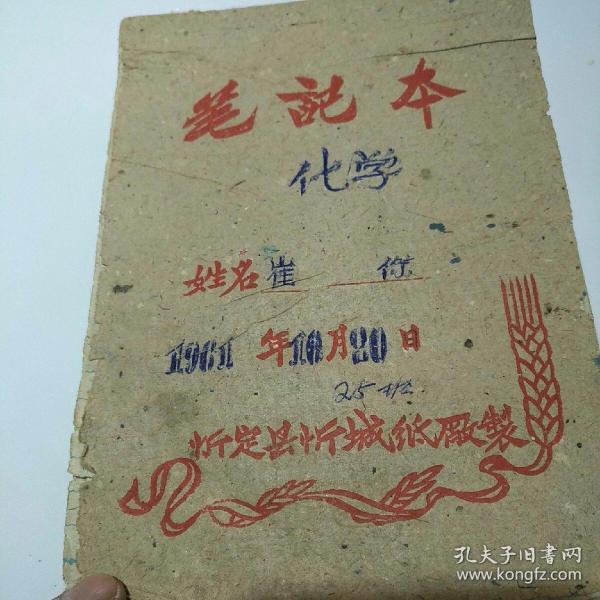 笔記本
化学
姓名 崔 保
1961 年 10 月 20 日
25班
忻定县忻城纸厰製
孔夫子旧書网
www.kongfz.com